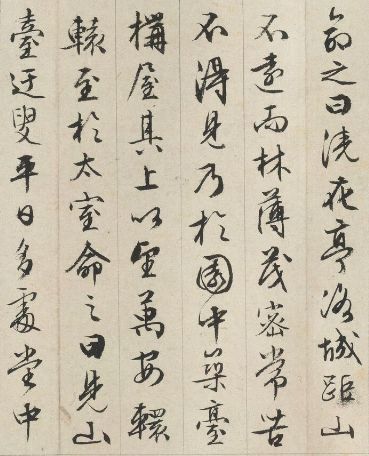 命之曰澆花亭洛城距山
不遠而林薄茂密常苦
不得見乃於園中築臺
構屋其上以望萬安轘
轅至於太室命之曰見山
臺迂叟平日多處堂中